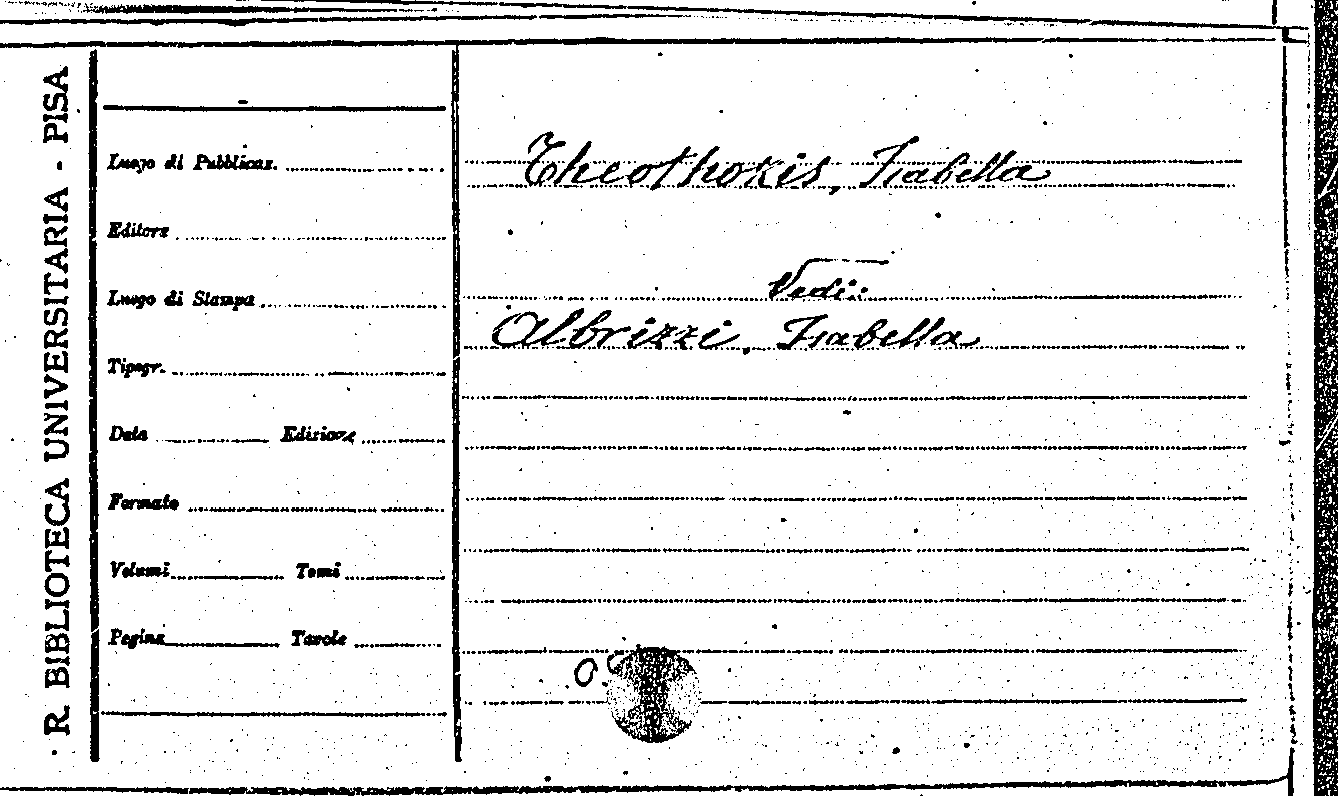 R. BIBLIOTECA UNIVERSITARIA - PISA
Luogo di Pubblicaz.
Editore
Luogo di Stampa
Tipogr.
Data Edizione
Formato
Volumi Tomi
Pagine Tavole
Theothokis, Isabella
Vedi:
Albrizzi, Isabella